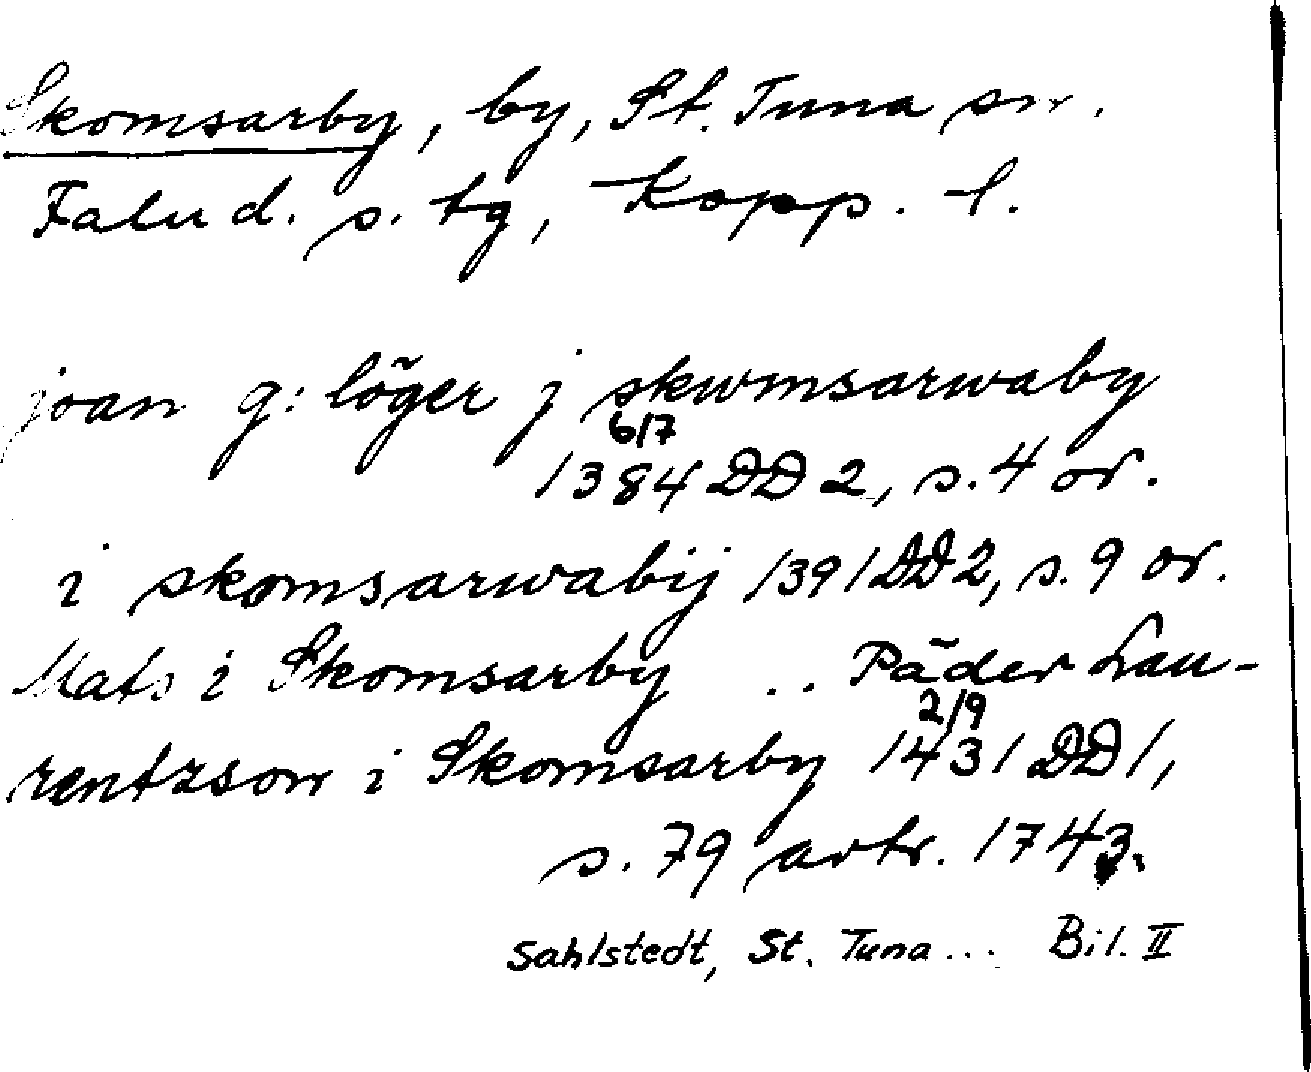 Skomsarby, by, St. Tuna sn.
Falu d. s. tg, Kopp. l.
joan g: löger j skwmsarwaby
6/7
1384 DD 2, s. 4 or.
i skomsarwabij 1391 DD 2, s. 9 or.
Mats i Skomsarby .. Päder Lau-
2/9
rentzson i Skomsarby 1431 DD 1,
s. 79 avtr. 1743.
Sahlstedt, St. Tuna ... Bil. II